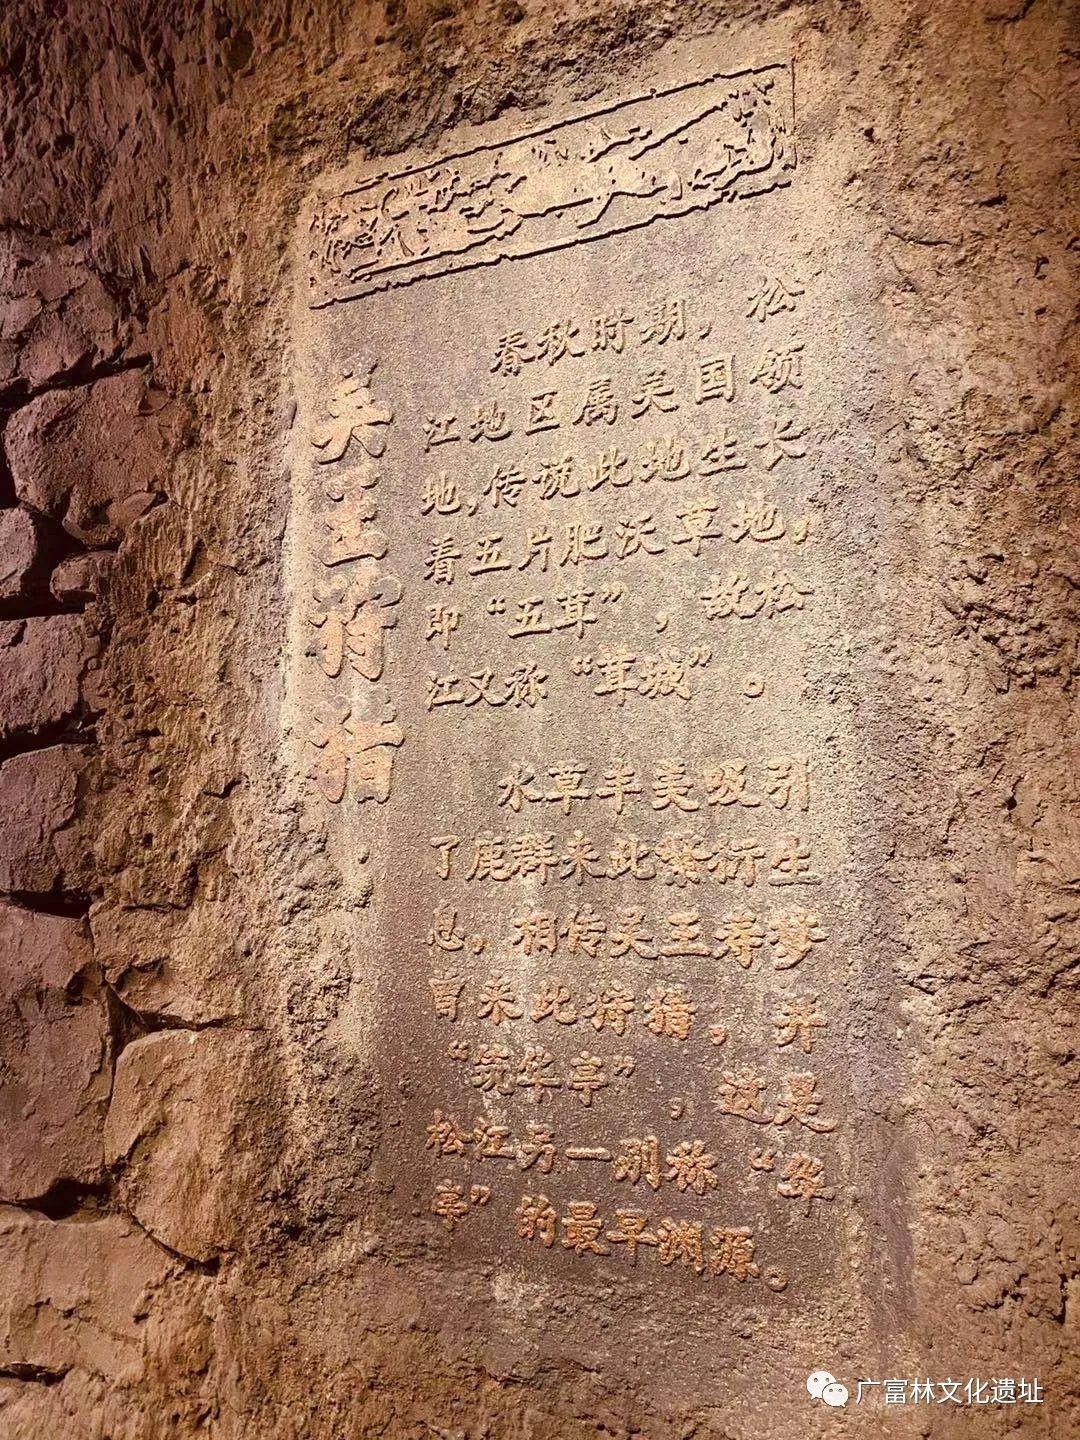 吴王狩猎
春秋时期，松
江地区属吴国领
地，传说此地生长
着五片肥沃草地，
即“五茸”，故松
江又称“茸城”。
水草丰美吸引
了鹿群来此繁衍生
息，相传吴王寿梦
曾来此狩猎，并
“筑华亭”，这是
松江另一别称“华
亭”的最早渊源。
广富林文化遗址